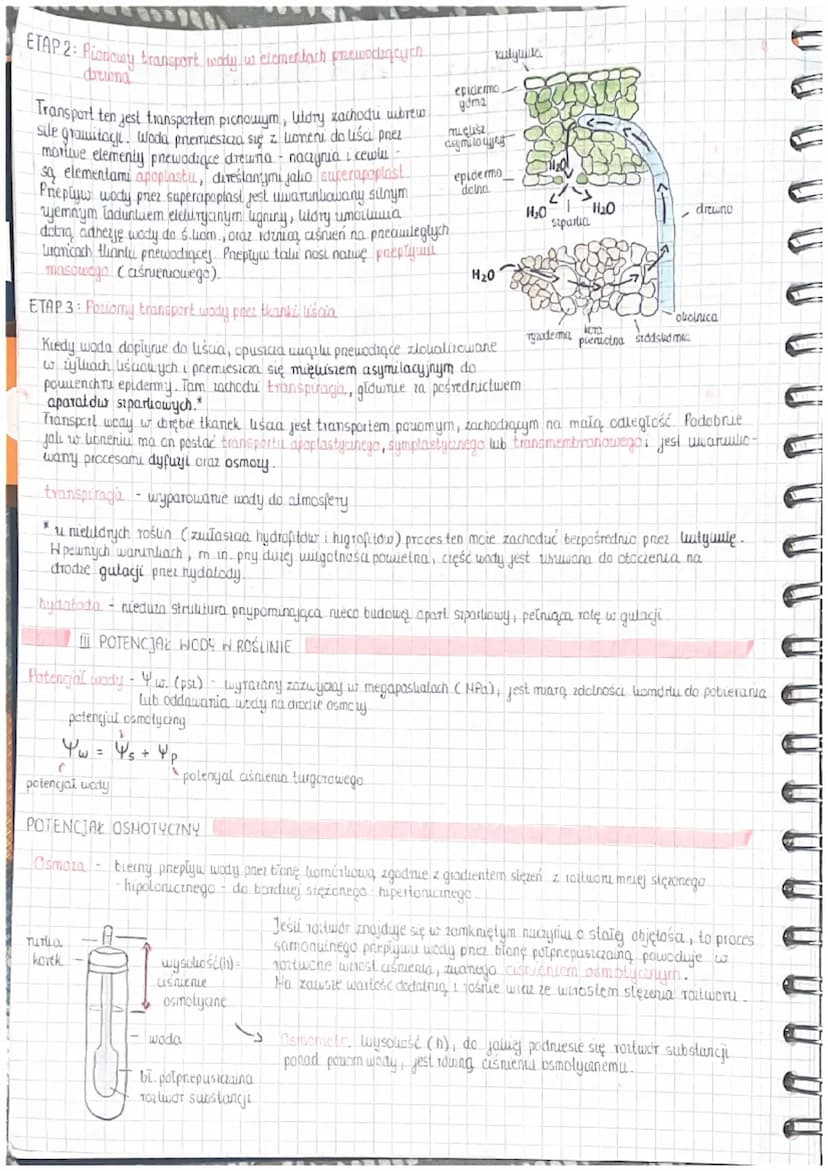 ETAP 2: Pionowy transport wody w elementach przewodzących
drewna
Transport ten jest transportem pionowym, który zachodzi wbrew
sile grawitacji. Woda przemieszcza się z korzeni do liści przez
martwe elementy przewodzące drewna - naczynia i cewki -
są elementami apoplastu, określanymi jako superapoplast.
Przepływ wody przez superapoplast jest uwarunkowany silnym
ujemnym ładunkiem elektrycznym ligniny, który umożliwia
dobrą adhezję wody do ś.kom., oraz różnicą ciśnień na przeciwległych
krańcach tkanki przewodzącej. Przepływ taki nosi nazwę przepływu
masowego (ciśnieniowego).
kutykula
epiderma
górna
miękisz
asymilacyjny
epiderma
dolna
H₂O
H₂O
H₂O
szparka
drewno
H₂O
okolnica
ryzoderma
kora
pierwotna
śródskórnia
ETAP 3: Poziomy transport wody przez tkanki liścia
Kiedy woda dopłynie do liścia, opuszcza wiązki przewodzące zlokalizowane
w żyłkach liściowych i przemieszcza się miękiszem asymilacyjnym do
powierzchni epidermy. Tam zachodzi transpiracja, głównie za pośrednictwem
aparatów szparkowych.*
Transport wody w obrębie tkanek liścia jest transportem poziomym, zachodzącym na małą odległość. Podobnie
jak w korzeniu ma on postać transportu apoplastycznego, symplastycznego lub transmembranowego i jest uwarunko-
wany procesami dyfuzji oraz osmozy.
transpiracja - wyparowanie wody do atmosfery
* u niektórych roślin (zwłaszcza hydrofitów i higrofitów) proces ten może zachodzić bezpośrednio przez kutykulę.
W pewnych warunkach, m.in. przy dużej wilgotności powietrza, część wody jest usuwana do otoczenia na
drodze gutacji przez hydatody.
hydatoda - nieduża struktura przypominająca nieco budową aparat szparkowy, pełniąca rolę w gutacji.
III POTENCJAŁ WODY W ROŚLINIE
Potencjał wody - Ψw. (psi) - wyrażany zazwyczaj w megapaskalach (MPa), jest miarą zdolności komórki do pobierania
lub oddawania wody na drodze osmozy
potencjał osmotyczny
Ψw = Ψs + Ψp
potencjał ciśnienia turgorowego
potencjał wody
POTENCJAŁ OSMOTYCZNY
Osmoza - bierny przepływ wody przez błonę komórkową, zgodnie z gradientem stężeń z roztworu mniej stężonego
- hipotonicznego - do bardziej stężonego - hipertonicznego.
Jeśli roztwór znajduje się w zamkniętym naczyniu o stałej objętości, to proces
samorzutnego przepływu wody przez błonę półprzepuszczalną powoduje w
roztworze wzrost ciśnienia, zwanego ciśnieniem osmotycznym.
Ma zawsze wartość dodatnią i rośnie wraz ze wzrostem stężenia roztworu.
rurka
korek
wysokość(h)=
ciśnienie
osmotyczne
woda
bł. półprzepuszczalna
roztwór substancji
Osmometr. Wysokość (h), do jakiej podniesie się roztwór substancji
ponad poziom wody, jest równa ciśnieniu osmotycznemu.